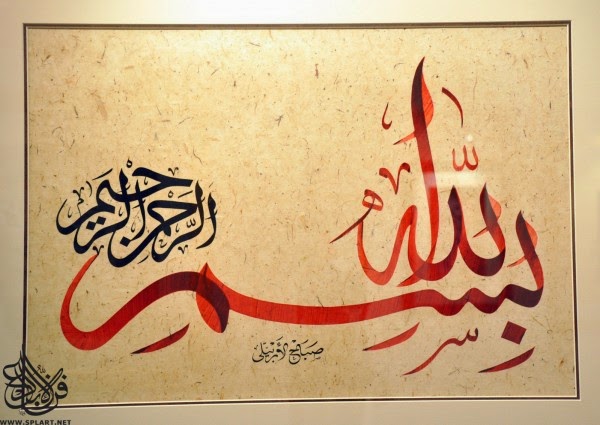 بِسْمِ اللّٰه
الرحمن الرحيم
صباح الأربيلي
WWW.SPLART.NET